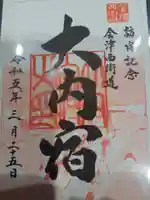 宿宮記念
会津西街道
大内宿
令和五年三月二十五日